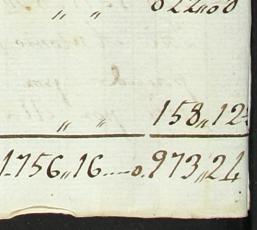 „ „ 822„08
„ „ 158„12
1.756„16---0. 973„24